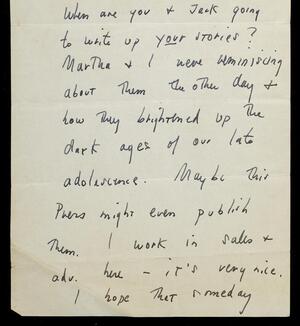 When are you & Jack going
to write up your stories?
Martha & I were reminiscing
about them the other day &
how they brightened up the
dark ages of our late
adolescence. Maybe this
Press might even publish
them. I work in sales &
adv. here – it's very nice.
I hope that someday